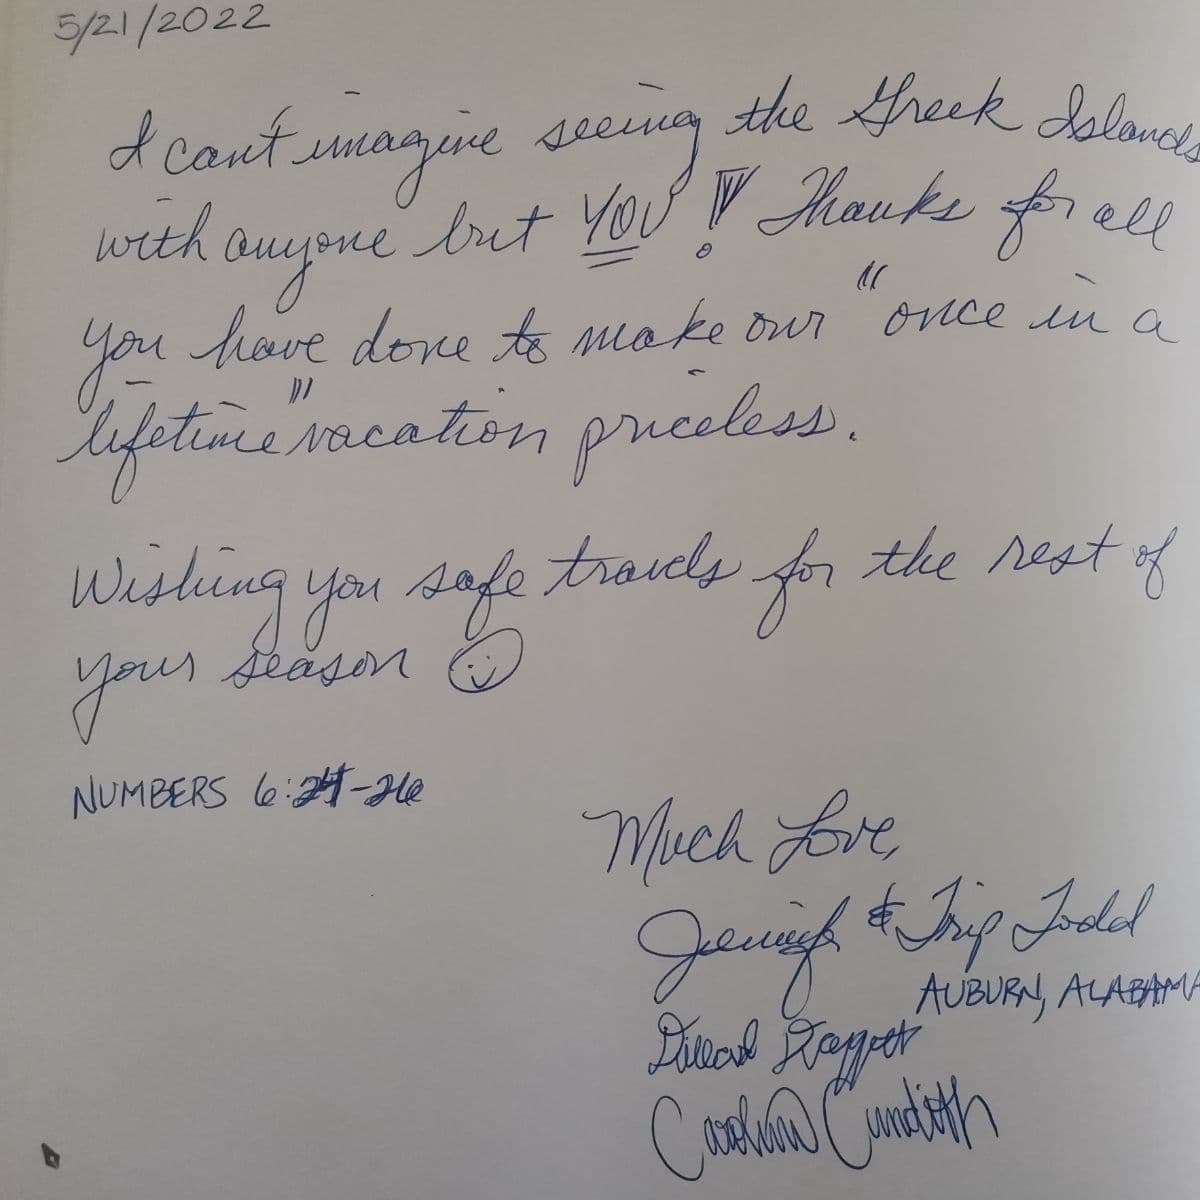 5/21/2022
I can't imagine seeing the Greek Islands
with anyone but YOU! Thanks for all
you have done to make our "once in a
lifetime" vacation priceless.
Wishing you safe travels for the rest of
your season ☺
NUMBERS 6:24-26
Much Love,
& Trip Todd
AUBURN, ALABAMA